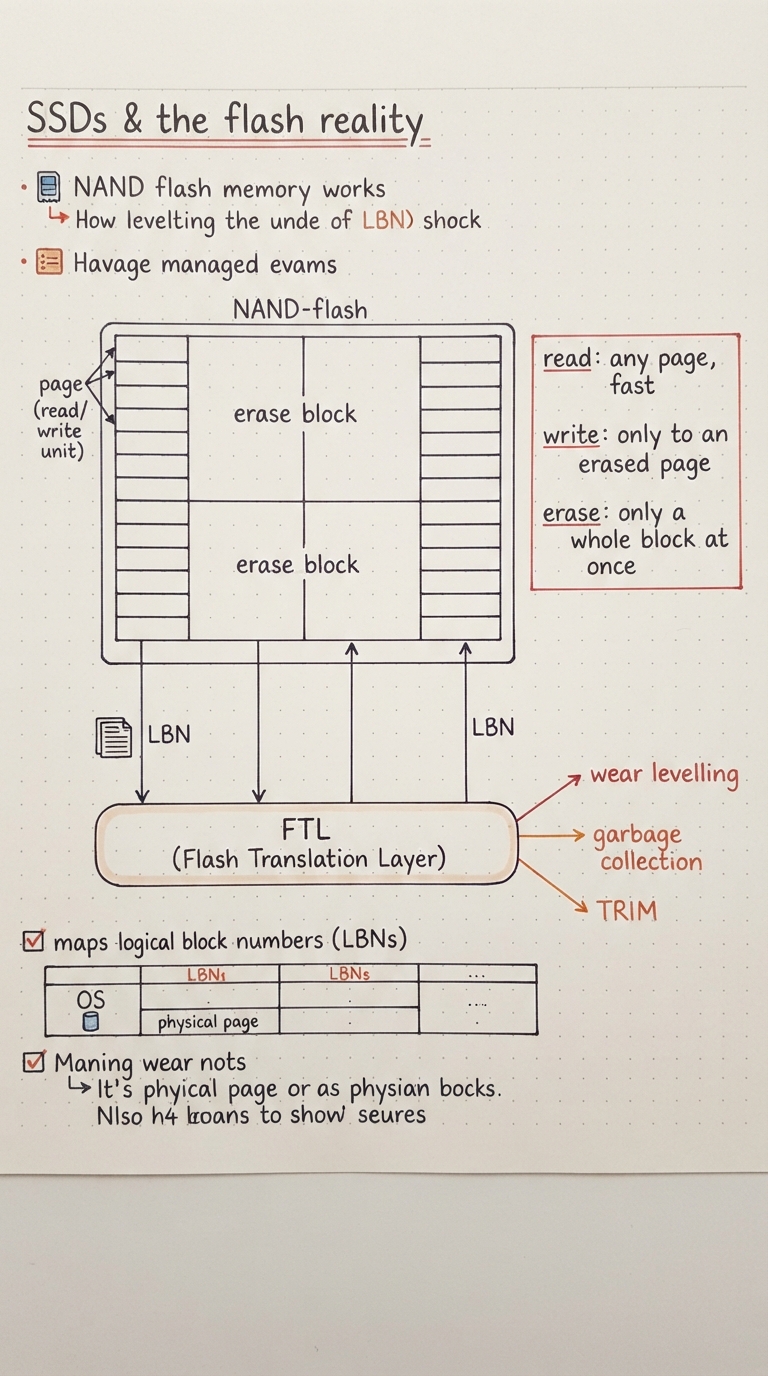 SSDs & the flash reality
NAND flash memory works
How levelting the unde of LBN) shock
Havage managed evams
NAND-flash
page
(read/
write
unit)
erase block
erase block
read: any page,
fast
write: only to an
erased page
erase: only a
whole block at
once
LBN
LBN
FTL
(Flash Translation Layer)
wear levelling
garbage
collection
TRIM
maps logical block numbers (LBNs)
LBNs LBNs ...
OS ....
physical page
Maning wear nots
It's phyical page or as physian bocks.
Nlso h4 to show seures